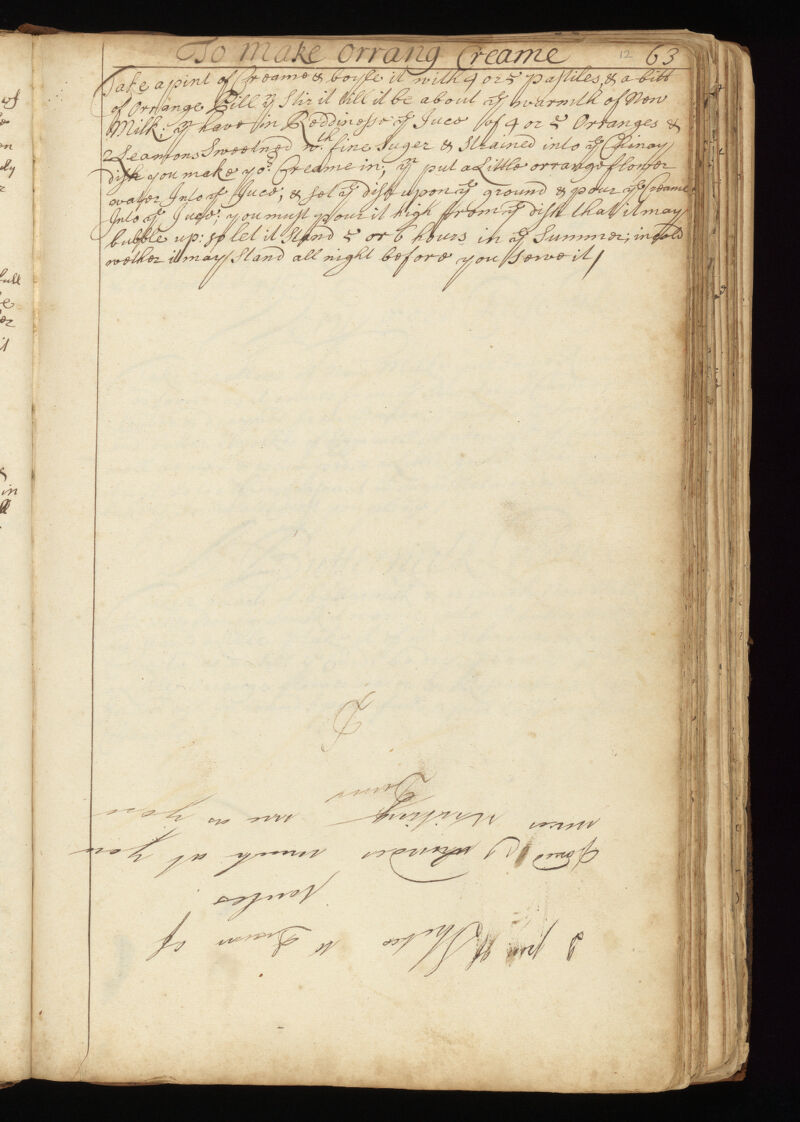 To make Orrang Creame
12 63
Take a pint of Creame & boyle it with 4 or 5 pastiles, & a bitt
of Orrange Pill yn Stir it till it be about ye warmth of New
Milk: yn have in Reddinesse ye Juce of 4 or 5 Orranges &
2 Leamons Sweetned wth fine Suger & Strained into ye Chinay
dish you make yor Creame in; yn put a Little orrange flower
water Into ye Juce; & set ye dish upon ye ground & pour ye Creame
Into ye Juce: you must pour it high from ye dish that it may
bubble up: so let it Stand 5 or 6 hours in ye Summer; in cold
wether it may Stand all night before you Serve it
of
on
full
it
in
D
never writing me as you
much at you
of